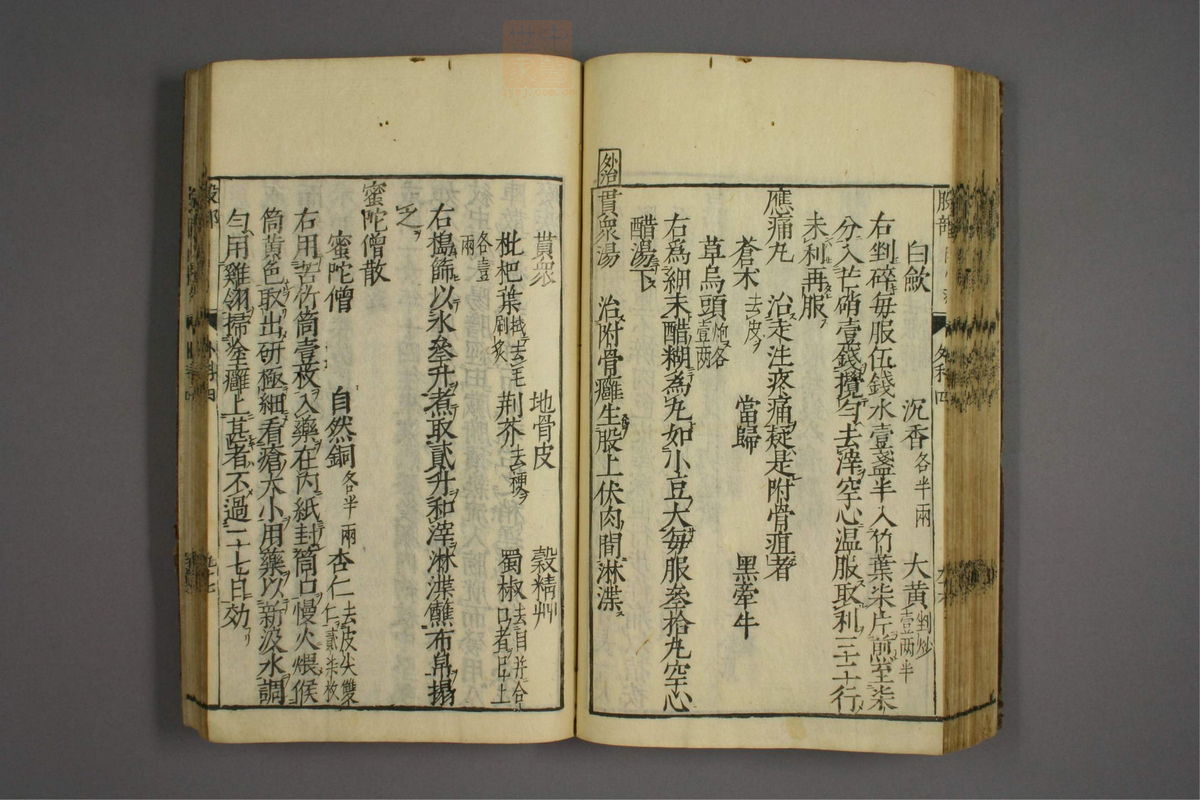 白歛　沉香各半兩　大黃剉炒壹两半
右剉碎每服伍錢水壹盞半入竹葉柒片煎至柒
分入芒硝壹錢攪勻去滓空心温服取利三二十行
未利再服
應痛丸　治走注疼痛疑是附骨疽者
蒼朮去皮　當歸　黑牽牛
草烏頭炮各壹两
右爲細末醋糊為丸如小豆大每服叁拾丸空心
醋湯下
外治
貫衆湯　治附骨癰生股上伏肉間淋渫
貫衆　地骨皮　穀精艸
枇杷葉拭去毛刷炙　荆芥去梗　蜀椒去目并合口者已上
各壹兩
右搗篩以水叁升煮取貳升和滓淋渫蘸布帛搨
之
蜜陀僧散
蜜陀僧　自然銅各半兩　杏仁去皮尖雙仁貳柒枚
右用苦竹筒壹枚入藥在内紙封筒口慢火煨候
筒黃色取出研極細看瘡大小用藥以新汲水調
勻用雞翎掃塗癰上甚者不過二十七日効